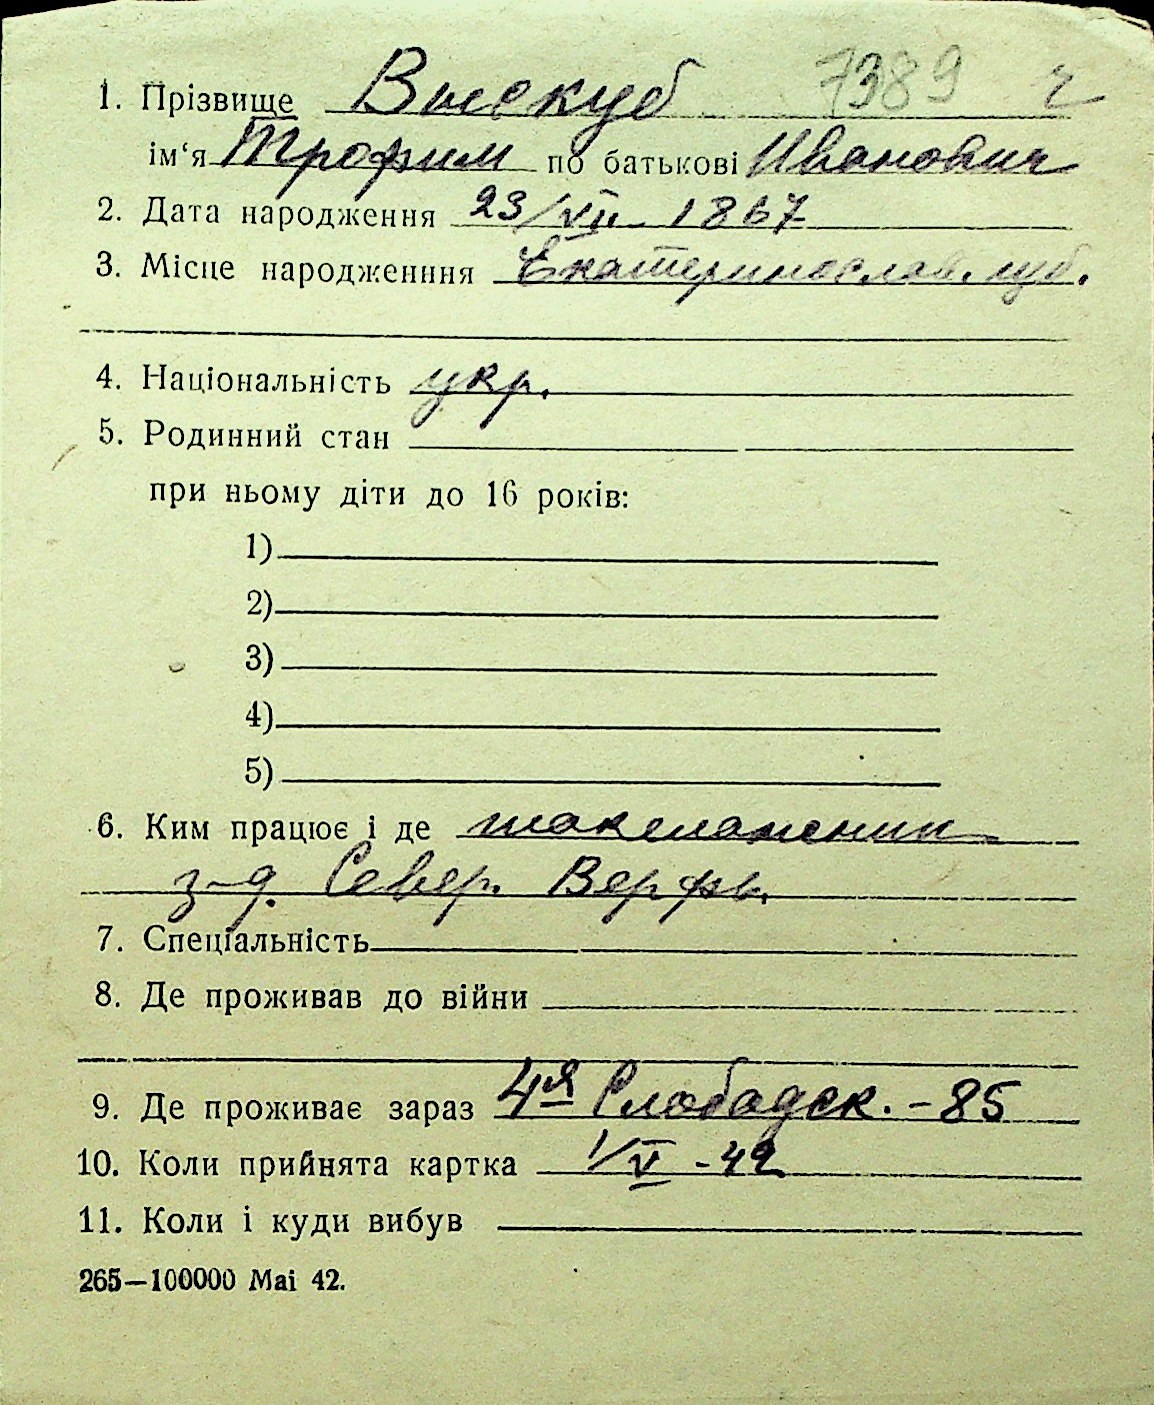 1. Прізвище Выскуб 7389 ч
ім‘я Трофим по батькові Иванович
2. Дата народження 23/VII 1867
3. Місце народженння Екатеринослав. губ.
4. Національність укр.
5. Родинний стан
при ньому діти до 16 років:
1)
2)
3)
4)
5)
6. Ким працює і де такелажник
з-д. Север. Верфь.
7. Спеціальність
8. Де проживав до війни
9. Де проживає зараз 4я Слободск. - 85
10. Коли прийнята картка 1/V - 42
11. Коли і куди вибув
265—100000 Mai 42.